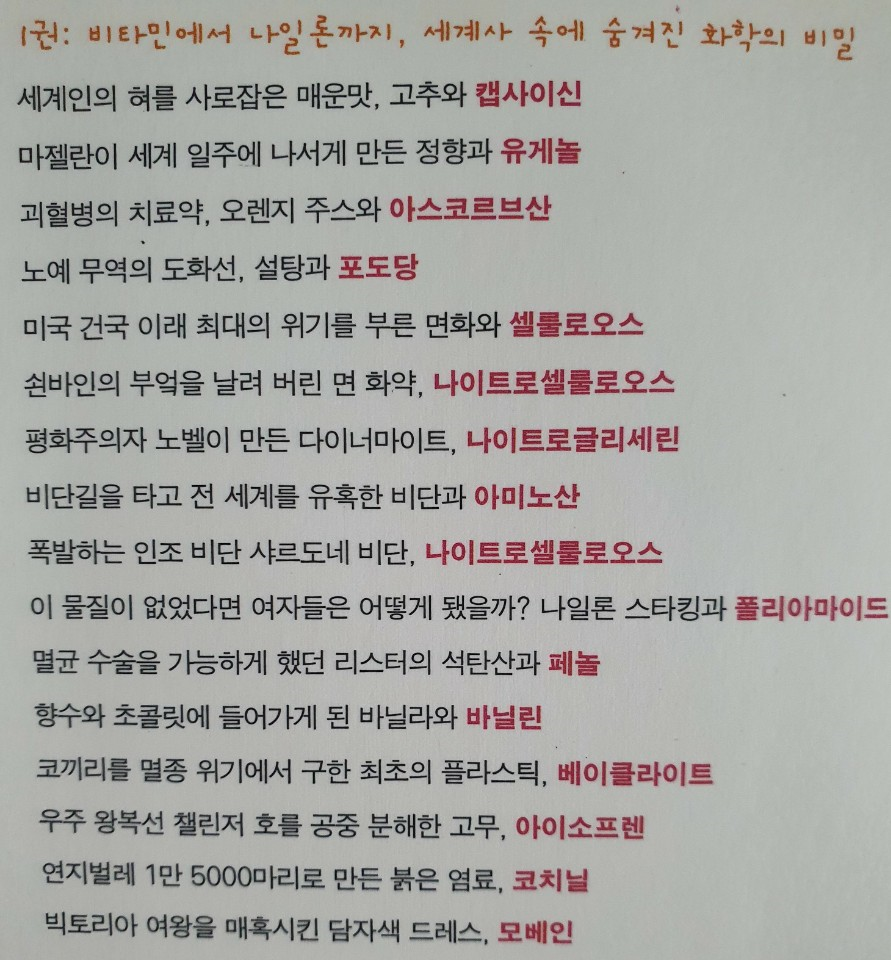 1권: 비타민에서 나일론까지, 세계사 속에 숨겨진 화학의 비밀
세계인의 혀를 사로잡은 매운맛, 고추와 캡사이신
마젤란이 세계 일주에 나서게 만든 정향과 유게놀
괴혈병의 치료약, 오렌지 주스와 아스코르브산
노예 무역의 도화선, 설탕과 포도당
미국 건국 이래 최대의 위기를 부른 면화와 셀룰로오스
쇤바인의 부엌을 날려 버린 면 화약, 나이트로셀룰로오스
평화주의자 노벨이 만든 다이너마이트, 나이트로글리세린
비단길을 타고 전 세계를 유혹한 비단과 아미노산
폭발하는 인조 비단 샤르도네 비단, 나이트로셀룰로오스
이 물질이 없었다면 여자들은 어떻게 됐을까? 나일론 스타킹과 폴리아마이드
멸균 수술을 가능하게 했던 리스터의 석탄산과 페놀
향수와 초콜릿에 들어가게 된 바닐라와 바닐린
코끼리를 멸종 위기에서 구한 최초의 플라스틱, 베이클라이트
우주 왕복선 챌린저 호를 공중 분해한 고무, 아이소프렌
연지벌레 1만 5000마리로 만든 붉은 염료, 코치닐
빅토리아 여왕을 매혹시킨 담자색 드레스, 모베인